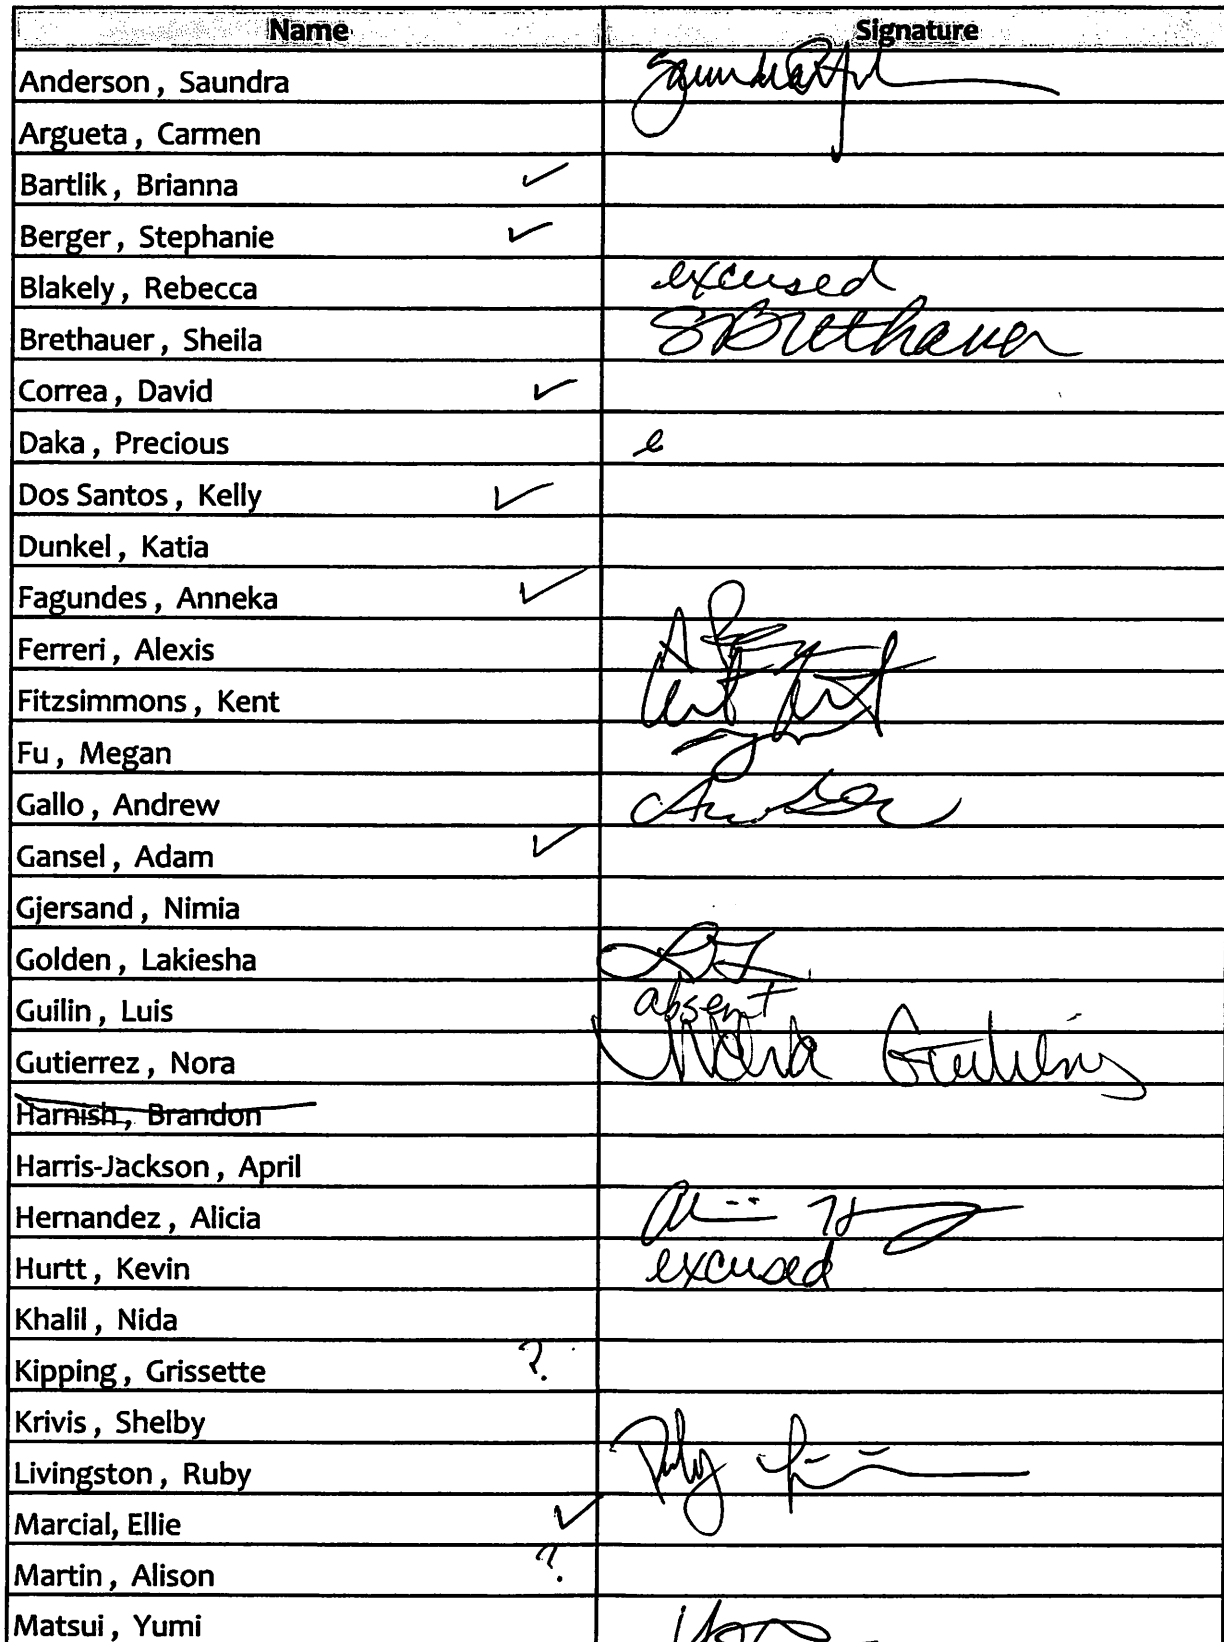 Name Signature
Anderson, Saundra
Argueta, Carmen
Bartlik, Brianna ✓
Berger, Stephanie ✓
Blakely, Rebecca excused
Brethauer, Sheila SBrethauer
Correa, David ✓
Daka, Precious e
Dos Santos, Kelly ✓
Dunkel, Katia
Fagundes, Anneka ✓
Ferreri, Alexis
Fitzsimmons, Kent
Fu, Megan
Gallo, Andrew
Gansel, Adam ✓
Gjersand, Nimia
Golden, Lakiesha
Guilin, Luis absent
Gutierrez, Nora Nora
Harnish, Brandon
Harris-Jackson, April
Hernandez, Alicia
Hurtt, Kevin excused
Khalil, Nida
Kipping, Grissette ?
Krivis, Shelby
Livingston, Ruby Ruby
Marcial, Ellie ✓
Martin, Alison ?
Matsui, Yumi